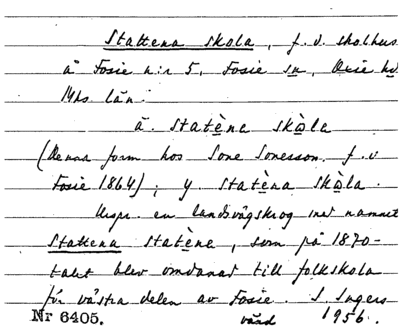 Stattena skola, f. d. skolhus
å Fosie n:r 5, Fosie sn, Oxie hd
Mhs län.
ä. statèna skòla
(Denna form hos Sone Sonesson f. v
Fosie 1864); y. statèna skòla.
Urspr. en landsvägskrog med namnet
Stattena statèna, som på 1870-
talet blev omdanat till folkskola
för västra delen av Fosie. S. Ingers
Nr 6405. 1956.